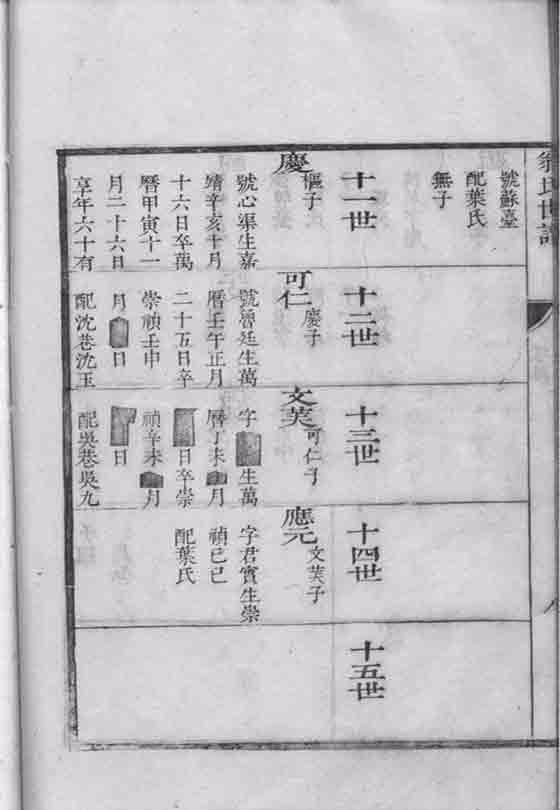 翁氏世譜
號蘇臺
配葉氏
無子
十一世
慶
樞子
號心渠生嘉
靖辛亥十月
十六日卒萬
曆甲寅十一
月二十六日
享年六十有
十二世
可仁
慶子
號魯廷生萬
曆壬午正月
二十五日卒
崇禎壬申
月 日
配沈巷沈玉
十三世
文芙
可仁子
字 生萬
曆丁未 月
日卒崇
禎辛未 月
日
配吳巷吳九
十四世
應元
文芙子
字君實生崇
禎己巳
配葉氏
十五世